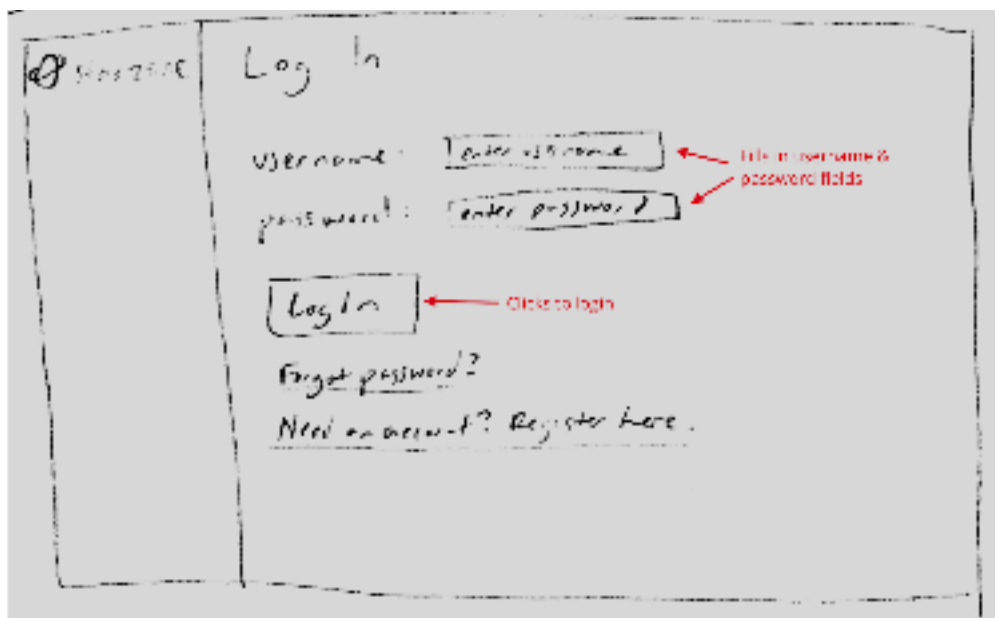 Log In
username:
enter username
Fills in username &
password fields
password:
enter password
Log In
Clicks to login
Forgot password?
Need an account? Register here.